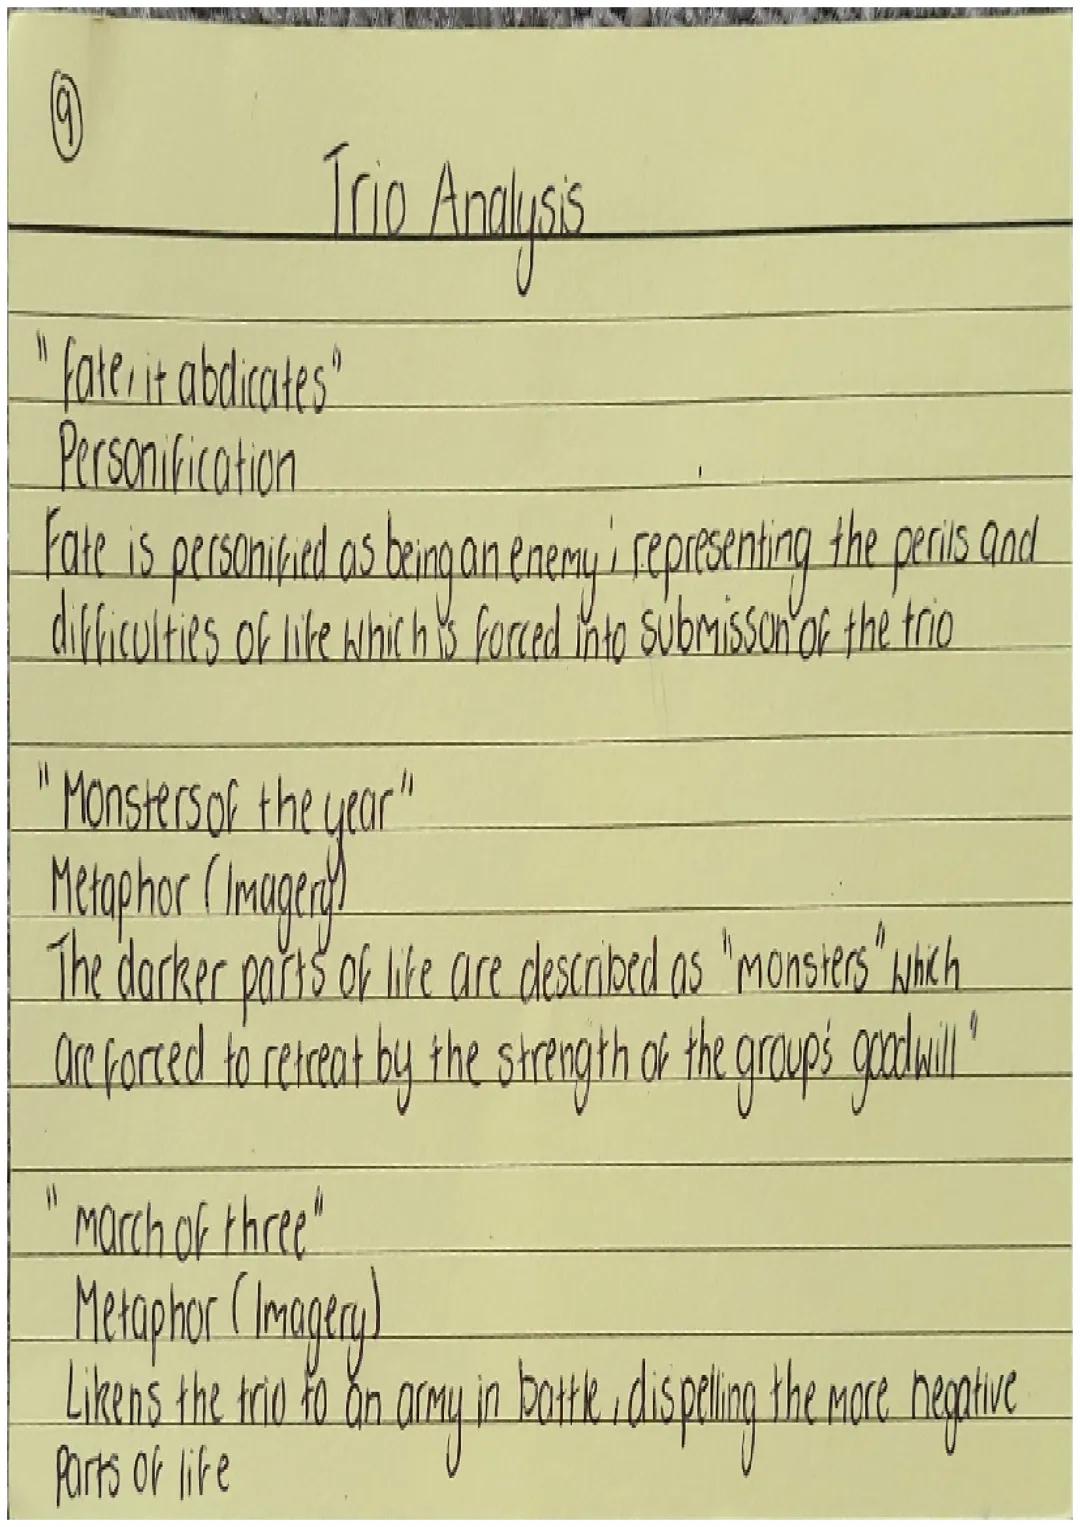 9
Trio Analysis
"fate, it abdicates"
Personification
Fate is personified as being an enemy; representing the perils and
difficulties of life which is forced into submisson of the trio
"Monsters of the year"
Metaphor (Imagery)
The darker parts of life are described as "monsters" which
are forced to retreat by the strength of the group's goodwill"
"march of three"
Metaphor (Imagery)
Likens the trio to an army in battle, dispelling the more negative
parts of life